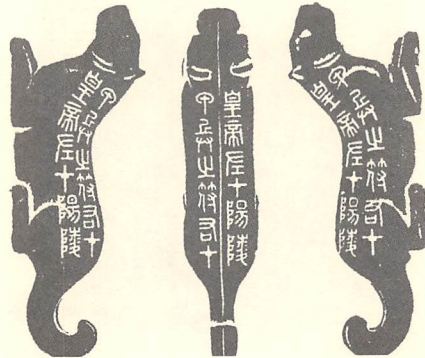 甲兵之符右才
皇帝左才陽陵
甲兵之符右才
皇帝左才陽陵
甲兵之符右才
皇帝左才陽陵